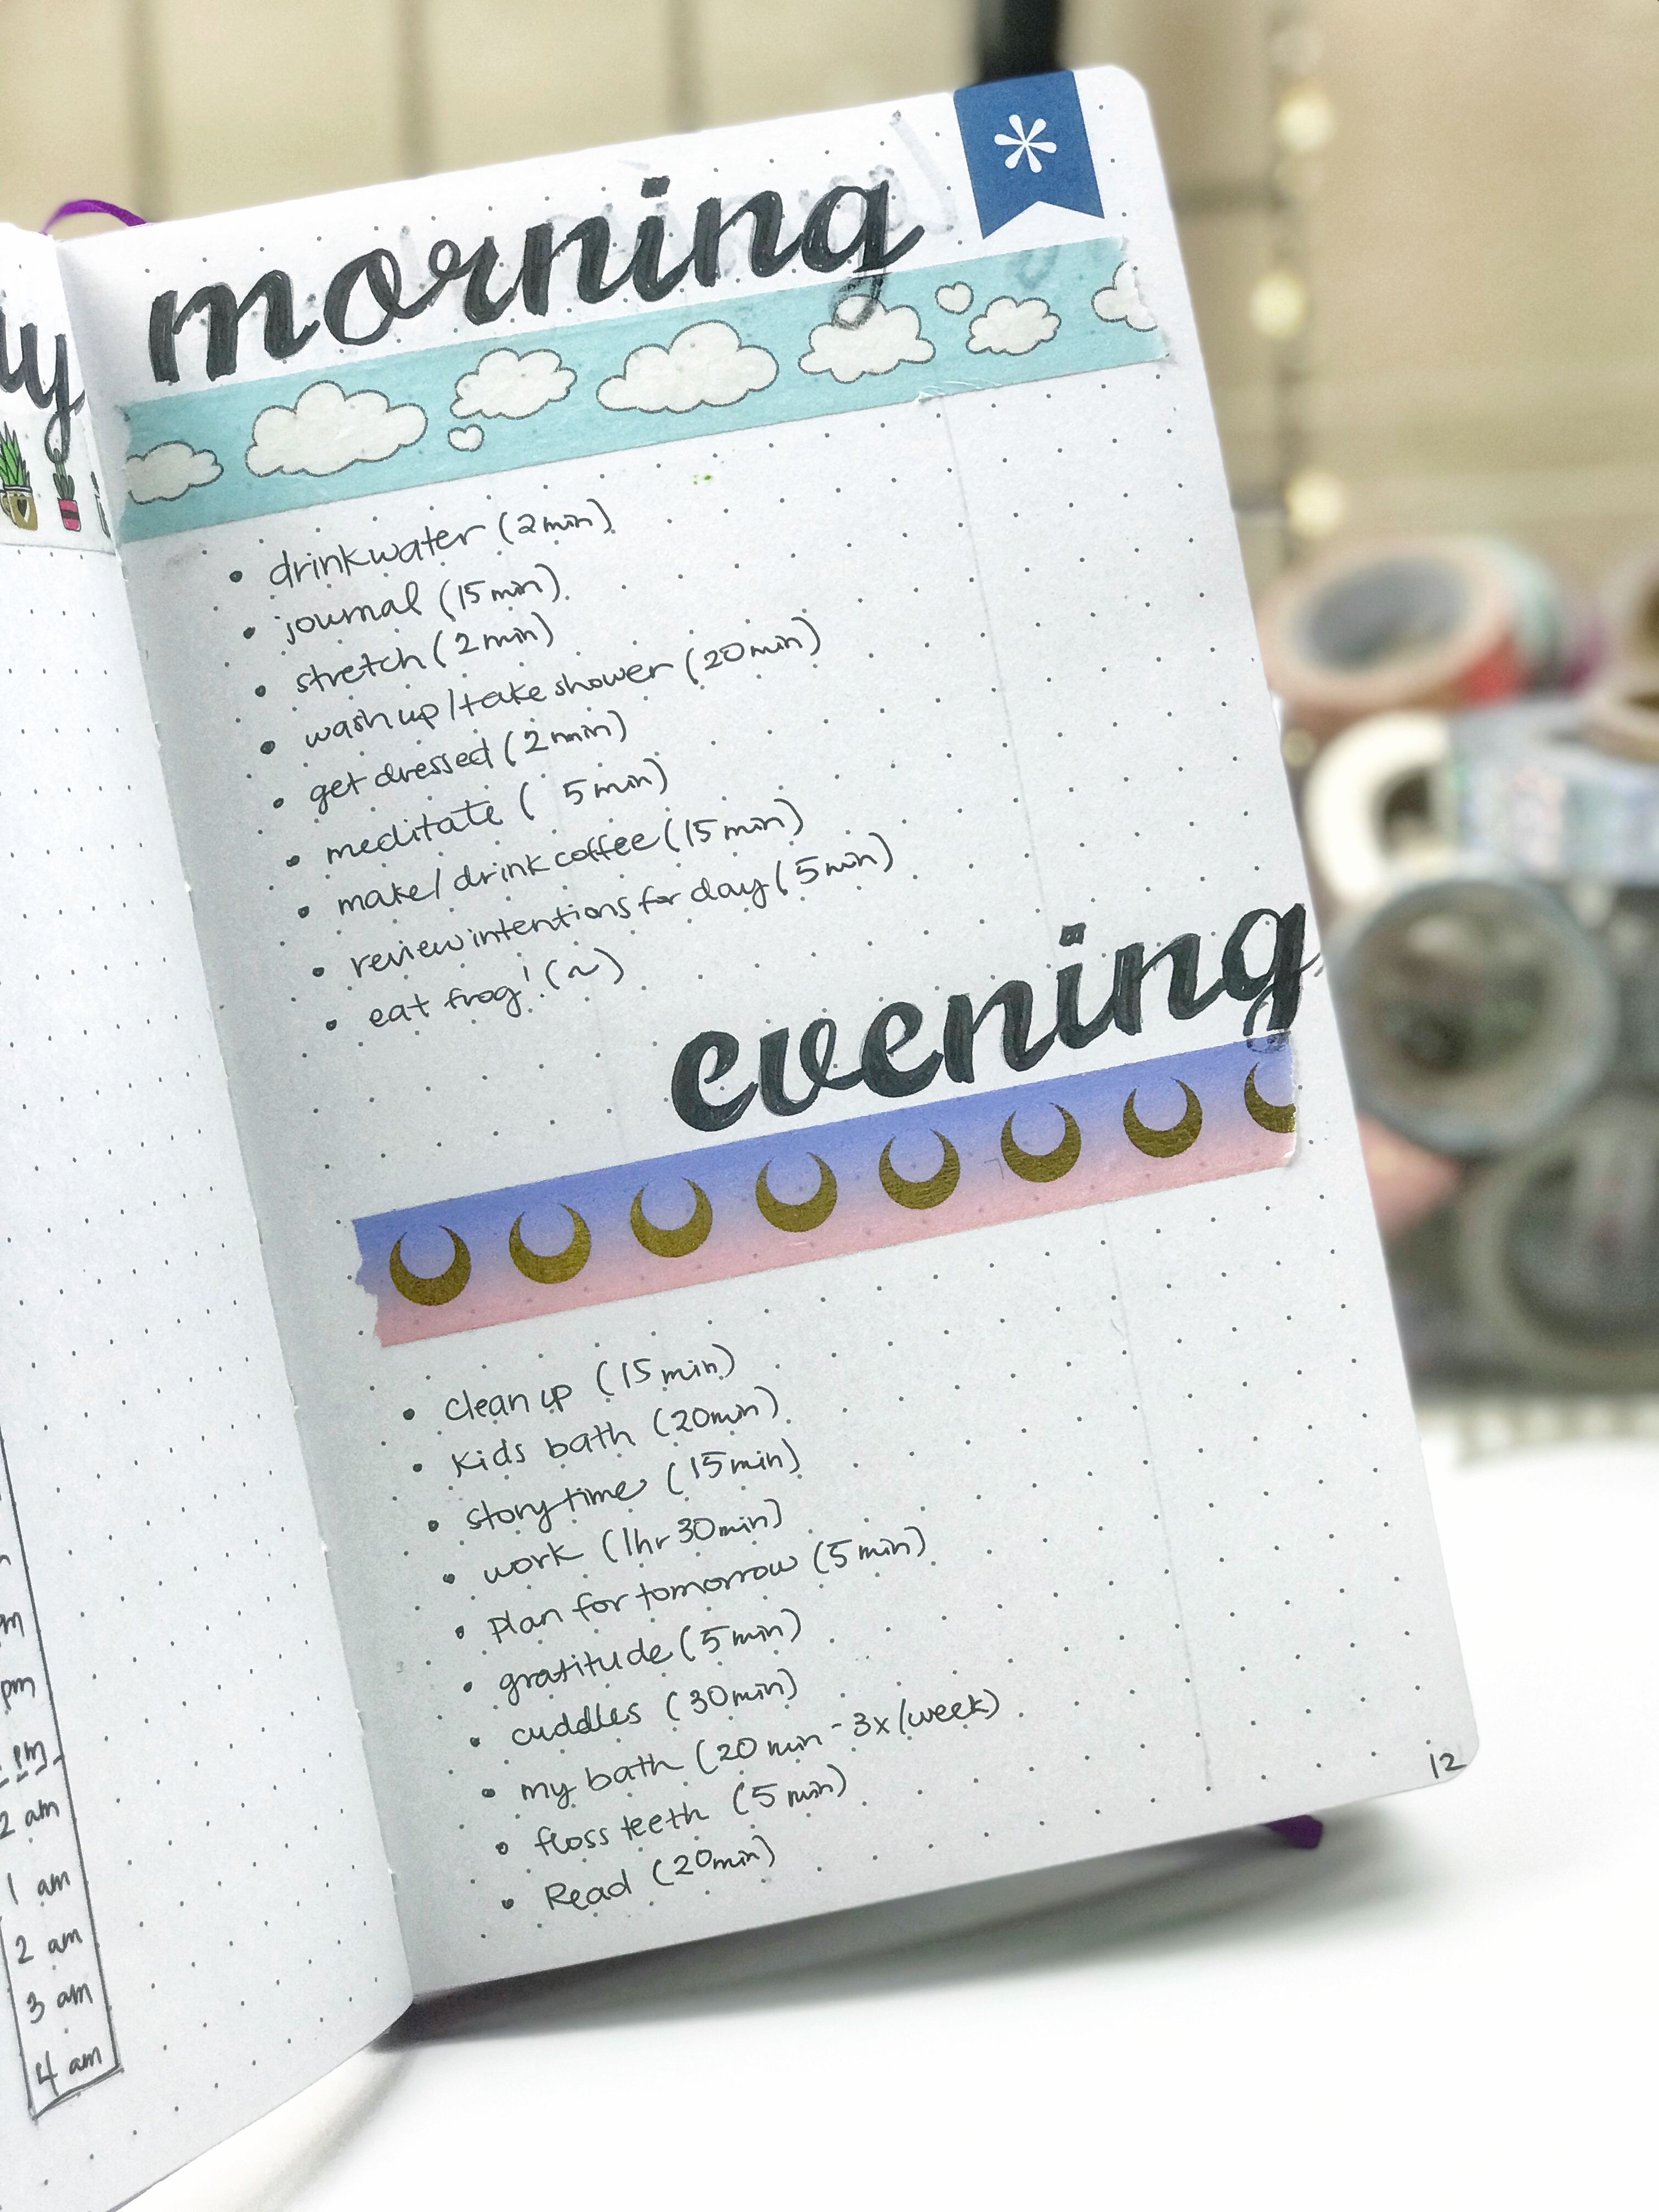 morning
• drink water (2 min)
• journal (15 min)
• stretch (2 min)
• wash up / take shower (20 min)
• get dressed (2 min)
• meditate ( 5 min)
• make / drink coffee (15 min)
• review intentions for day (5 min)
• eat frog! (~)
evening
• clean up (15 min)
• Kids bath (20 min)
• story time (15 min)
• work (1hr 30min)
• Plan for tomorrow (5 min)
• gratitude (5 min)
• cuddles (30 min)
• my bath (20 min - 3x/week)
• floss teeth (5 min)
• Read (20 min)
12
pm
pm
2 am
1 am
2 am
3 am
4 am